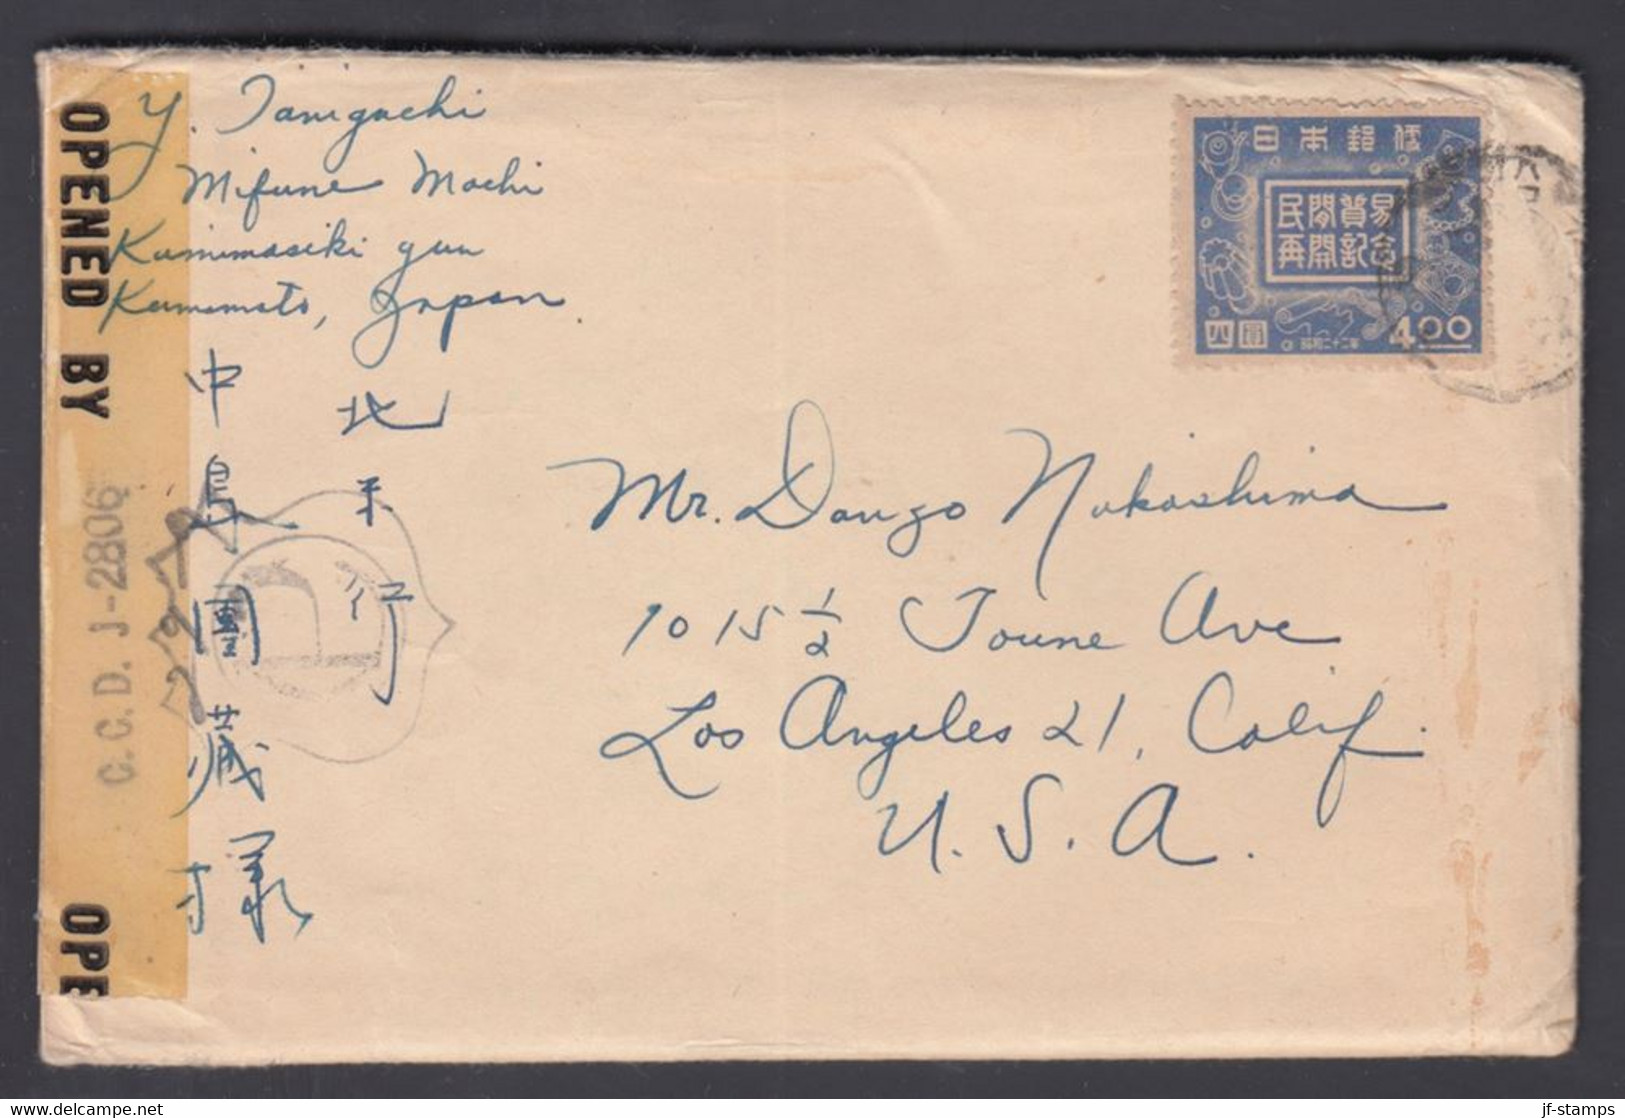 Y. Taniguchi
Mifune Machi
Kamimasiki gun
Kumamoto, Japan
OPENED BY
OPE
C.C.D. J-2806
日本郵便
民間貿易
再開記念
四圓
昭和二十二年
4.00
北米行
中島團蔵様
Mr. Dango Nakashima
1015 1/2 Towne Ave
Los Angeles 21, Calif.
U. S. A.
jf-stamps